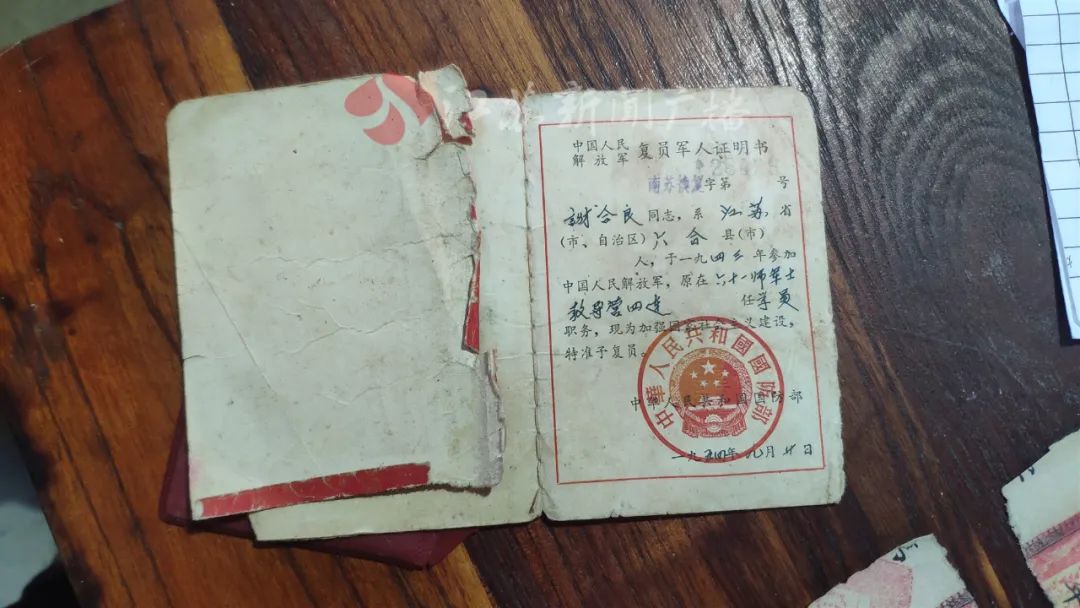 江苏新闻广播
中国人民
解放军 复员军人证明书
字第 号
谢合良 同志，系 江苏 省
(市、自治区) 六合 县(市)
人，于一九四三年参加
中国人民解放军，原在 六十一师军士
教导营四连 任 学员
职务，现为加强国家社会主义建设，
特准予复员。
中华人民共和国国防部
中華人民共和國國防部
一九五四年九月廿日